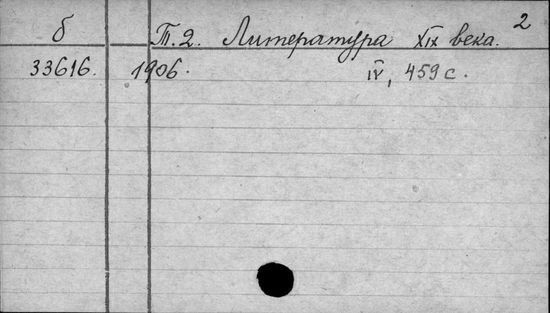 2
б Т. 2. Литература XIX века.
33616. 1906. IV, 459 с.